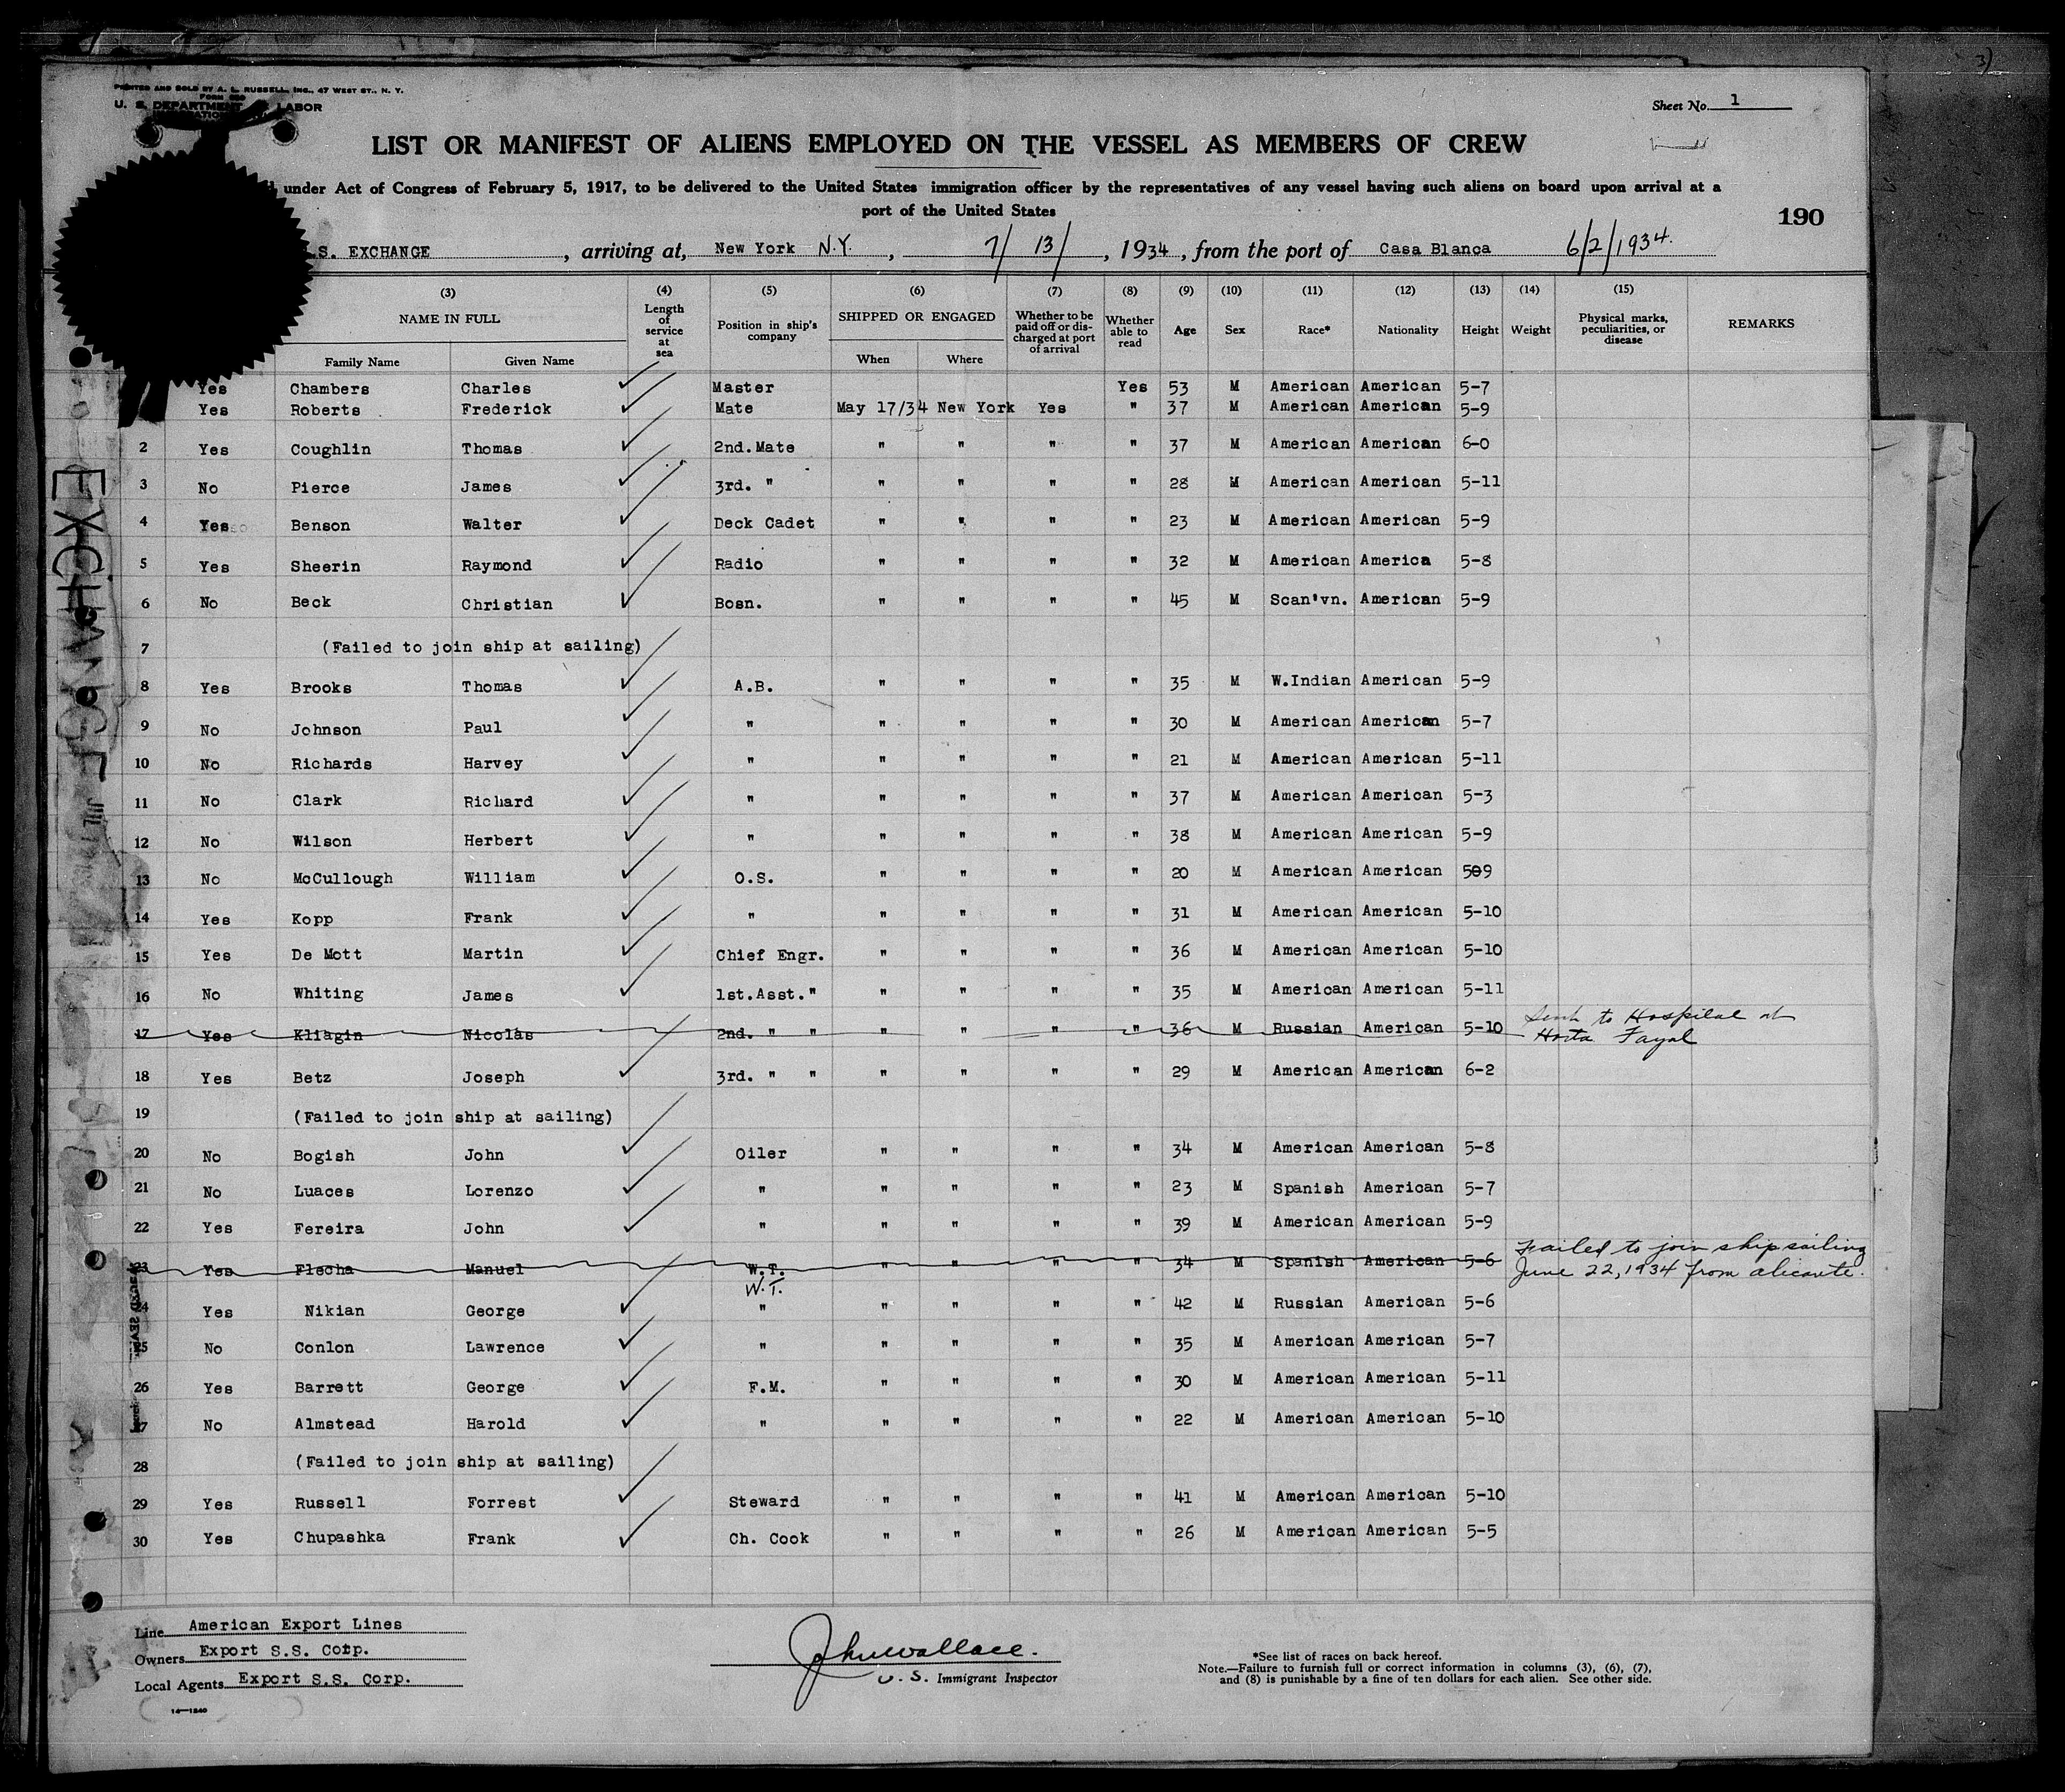 PRINTED AND SOLD BY A. L. RUSSELL, INC., 47 WEST ST., N. Y.
U. S. DEPARTMENT LABOR
Sheet No. 1
LIST OR MANIFEST OF ALIENS EMPLOYED ON THE VESSEL AS MEMBERS OF CREW
under Act of Congress of February 5, 1917, to be delivered to the United States immigration officer by the representatives of any vessel having such aliens on board upon arrival at a
port of the United States
190
S. EXCHANGE, arriving at, New York N.Y., 7/13/, 1934, from the port of Casa Blanca 6/2/1934.
(3) (4) (5) (6) (7) (8) (9) (10) (11) (12) (13) (14) (15)
NAME IN FULL Length of service at sea Position in ship's company SHIPPED OR ENGAGED Whether to be paid off or discharged at port of arrival Whether able to read Age Sex Race* Nationality Height Weight Physical marks, peculiarities, or disease REMARKS
Family Name Given Name When Where
Yes Chambers Charles Master Yes 53 M American American 5-7
Yes Roberts Frederick Mate May 17/34 New York Yes " 37 M American American 5-9
2 Yes Coughlin Thomas 2nd.Mate " " " " 37 M American American 6-0
3 No Pierce James 3rd. " " " " " 28 M American American 5-11
4 Yes Benson Walter Deck Cadet " " " " 23 M American American 5-9
5 Yes Sheerin Raymond Radio " " " " 32 M American America 5-8
6 No Beck Christian Bosn. " " " " 45 M Scan'vn. American 5-9
7 (Failed to join ship at sailing)
8 Yes Brooks Thomas A.B. " " " " 35 M W.Indian American 5-9
9 No Johnson Paul " " " " " 30 M American American 5-7
10 No Richards Harvey " " " " " 21 M American American 5-11
11 No Clark Richard " " " " " 37 M American American 5-3
12 No Wilson Herbert " " " " " 38 M American American 5-9
13 No McCullough William O.S. " " " " 20 M American American 509
14 Yes Kopp Frank " " " " " 31 M American American 5-10
15 Yes De Mott Martin Chief Engr. " " " " 36 M American American 5-10
16 No Whiting James 1st.Asst." " " " " 35 M American American 5-11
17 Yes Kliagin Nicolas 2nd. " " " " " " 36 M Russian American 5-10 Sent to Hospital at
Horta Fayal
18 Yes Betz Joseph 3rd. " " " " " " 29 M American American 6-2
19 (Failed to join ship at sailing)
20 No Bogish John Oiler " " " " 34 M American American 5-8
21 No Luaces Lorenzo " " " " " 23 M Spanish American 5-7
22 Yes Fereira John " " " " " 39 M American American 5-9
23 Yes Flecha Manuel W.T. " " " " 34 M Spanish American 5-6 Failed to join ship sailing
June 22, 1934 from alicante.
W.T.
24 Yes Nikian George " " " " " 42 M Russian American 5-6
25 No Conlon Lawrence " " " " " 35 M American American 5-7
26 Yes Barrett George F.M. " " " " 30 M American American 5-11
27 No Almstead Harold " " " " " 22 M American American 5-10
28 (Failed to join ship at sailing)
29 Yes Russell Forrest Steward " " " " 41 M American American 5-10
30 Yes Chupashka Frank Ch. Cook " " " " 26 M American American 5-5
EXCHANGE
Line American Export Lines
Owners Export S.S. Corp.
Local Agents Export S.S. Corp.
14—1240
John Wallace.
U. S. Immigrant Inspector
*See list of races on back hereof.
Note.—Failure to furnish full or correct information in columns (3), (6), (7),
and (8) is punishable by a fine of ten dollars for each alien. See other side.